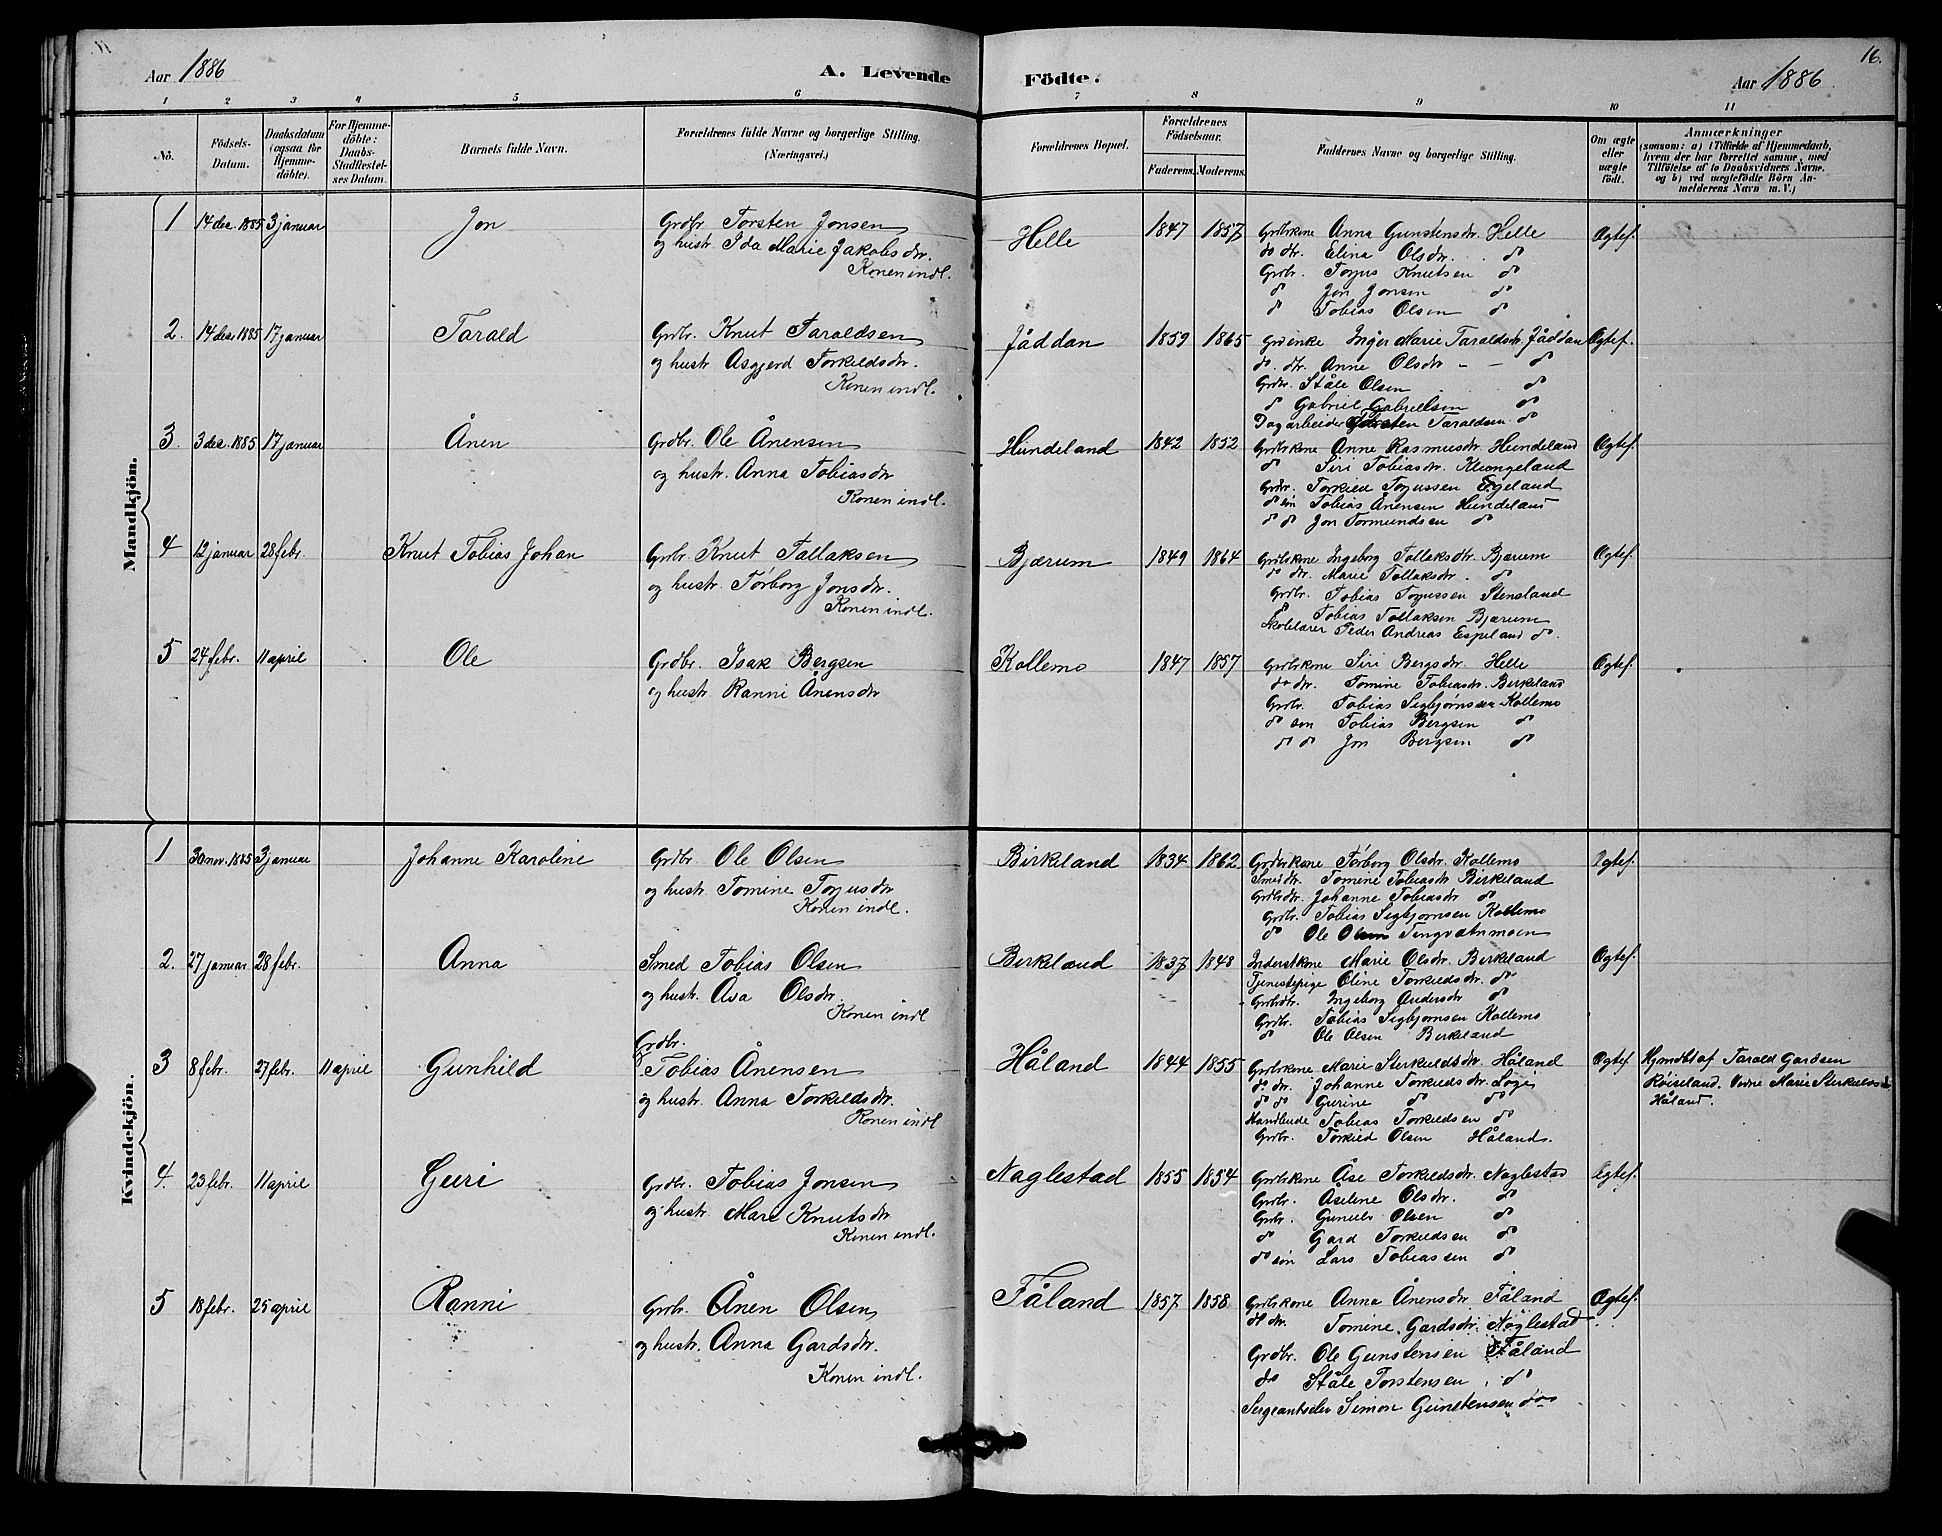 Aar 1886
A. Levende Födte.
Aar 1886
16.
1 2 3 4 5 6 7 8 9 10 11
No.
Födsels-Datum.
Daabsdatum (ogsaa for Hjemme-döbte).
For Hjemme-döbte: Daabs-Stadfæstel-ses Datum.
Barnets fulde Navn.
Forældrenes fulde Navne og borgerlige Stilling. (Næringsvei.)
Forældrenes Bopæl.
Forældrenes Födselsaar.
Faderens. Moderens.
Faddernes Navne og borgerlige Stilling.
Om ægte eller uægte født.
Anmærkninger
(saasom: a) i Tilfælde af Hjemmedaab, hvem der har forrettet samme, med Tilföielse af to Daabsvidners Navne, og b) ved uægtefødte Börn An-melderens Navn m. V.)
Mandkjön.
1 14 dec. 1885 3 januar Jon
Grdbr. Torsten Jonsen
og hustr. Ida Marie Jakobsdr.
Konen indl.
Helle 1847 1857
Grdbrkone Anna Gunstensdr. Helle
do dtr. Elina Olsdr. do
Grdbr. Torjus Knutsen do
do Jon Jonsen do
do Tobias Olsen do
Ægtef.
2. 14 dec. 1885 17 januar Tarald
Grdbr. Knut Taraldsen
og hustr. Asgjerd Torkildsdr.
Konen indl.
Jåddan 1859 1865
Grdenke Inger Marie Taraldsdr. Jåddan
do. dtr. Anne Olsdr - - do
Grdbr. Ståle Olsen do
do Gabriel Gabrielsen do
Dagarbeider Torsten Taraldsen do
Ægtef.
3. 3 dec. 1885 17 januar Ånen
Grdbr. Ole Ånensen
og hustr. Anna Tobiasdr
Konen indl.
Hundeland 1842 1852
Grdbrkone Anne Rasmusdr. Hundeland
do Siri Tobiasdr. Klungeland
Grdbr. Torkild Torjussen Egeland
do søn Tobias Ånensen Hundeland
do do Jon Tormundsen do
Ægtef.
4 12 januar 28 febr. Knut Tobias Johan
Grdbr. Knut Tallaksen
og hustr. Torborg Jonsdr.
Konen indl.
Bjærum 1849 1864
Grdbrkone Ingeborg Tallaksdtr. Bjærum
do dtr. Marie Tallaksdr. do
Grdbr. Tobias Torjussen Stensland
do Tobias Tallaksen Bjærum
Skolelærer Peder Andreas Espeland do.
Ægtef.
5 24 febr. 11 april Ole
Grdbr. Isak Bergsen
og hustr. Ranni Ånensdr
Kollemo 1847 1857
Grdbrkone Siri Bergsdr. Helle
do dtr. Tomine Tobiasdr. Birkeland
Grdbr. Tobias Sigbjørnsen Kollemo
do søn Tobias Bergsen do
do do Jon Bergsen do
Ægtef.
Kvindekjön.
1 30 nov. 1885 3 januar Johanne Karoline
Grdbr. Ole Olsen
og hustr. Tomine Torjusdr
Konen indl.
Birkeland 1834 1862
Grdbrkone Torborg Olsdr. Kollemo
Smeddtr. Tomine Tobiasdr Birkeland
Grdbrdtr. Johanne Tobiasdr do
Grdbr. Tobias Sigbjørnsen Kollemo
do Ole Olsen Tingvatnmoen
Ægtef.
2. 27 januar 28 febr. Anna
Smed Tobias Olsen
og hustr. Åsa Olsdr.
Konen indl
Birkeland 1837 1848
Inderstkone Marie Olsdr. Birkeland
Tjenestepige Oline Torkildsdr. do
Grdbrdtr. Ingeborg Andersdr do
Grdbr. Tobias Sigbjørnsen Kollemo
do Ole Olsen Birkeland
Ægtef.
3 8 febr. 27 febr. 11 april Gunhild
Grdbr.
Tobias Ånensen
og hustr. Anna Torkildsdr.
Konen indl
Håland 1844 1855
Grdbrkone Marie Sterkuldsdr. Håland
do dtr. Johanne Torkildsdr. Logi
do do Gurine do do
Handlende Tobias Torkildsen do
Grdbr. Torkild Olsen Håland.
Ægtef
Hjmdbt af Tarald Gardsen
Röiseland. Vidne Marie Sterkuldsdr
Håland.
4. 23 febr. 11 april Guri
Grdbr. Tobias Jonsen
og hustr. Mari Knutsdr
Konen indl.
Naglestad 1855 1854
Grdbrkone Åse Torkildsdr. Naglestad
Grdbr. Åselene Olsdr. do
Grdbr. Gunuld Olsen do
do Gard Torkildsen do
do søn Lars Tobiassen do
Ægtef.
5 18 febr. 25 april Ranni
Grdbr. Ånen Olsen
og hustr. Anna Gardsdr.
Konen indl.
Fåland 1857 1858
Grdbrkone Anna Ånensdr Fåland
do dtr. Tomine Gardsdr. Naglestad
Grdbr. Ole Gunstensen Fåland
do Ståle Torstensen do
Sergeantselev Simon Gunstensen do
Ægtef.